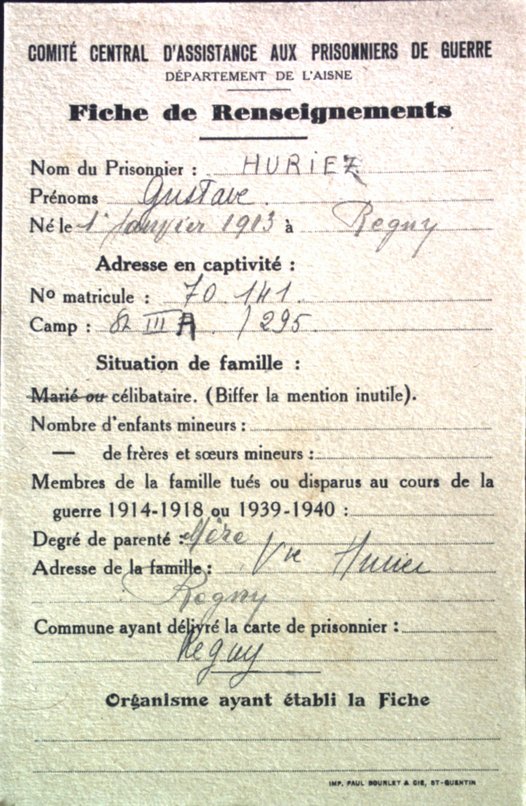 COMITÉ CENTRAL D'ASSISTANCE AUX PRISONNIERS DE GUERRE
DÉPARTEMENT DE L'AISNE
Fiche de Renseignements
Nom du Prisonnier : HURIEZ
Prénoms Gustave
Né le 1er Janvier 1913 à Regny
Adresse en captivité :
No matricule : 70.141
Camp : St III A /295
Situation de famille :
Marié ou célibataire. (Biffer la mention inutile).
Nombre d'enfants mineurs :
— de frères et sœurs mineurs :
Membres de la famille tués ou disparus au cours de la
guerre 1914-1918 ou 1939-1940 :
Degré de parenté : Mère
Adresse de la famille : Vve Huriez
Regny
Commune ayant délivré la carte de prisonnier :
Regny
Organisme ayant établi la Fiche
IMP. PAUL BOURLET & CIE, ST-QUENTIN